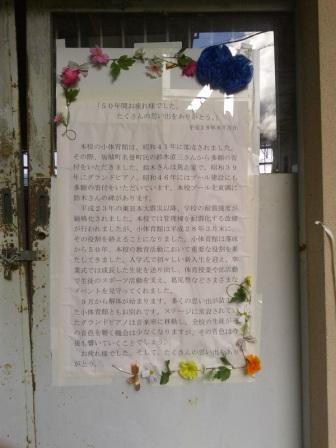 「50年間お疲れ様でした。
たくさんの思い出をありがとう。」
本校の小体育館は、昭和41年に落成されました。
その際、
鈴木
さんから多額の寄
付をいただきました。鈴木さんは
、昭和3
年にグランドピアノ、昭和46年にはプール建設にも
多額の寄付をいただいています。本校プール北東隅に
鈴木さんの碑があります。
平成23年の東日本大震災以降、学校の耐震強度が
厳格化されました。本校では管理棟を耐震化する改修
が行われましたが、小体育館は平成28年3月末に、
その役割を終えることになりました。小体育館は落成
から50年、本校の教育活動において重要な役割を果
たしてきました。入学式で初々しい新入生を迎え、卒
業式では成長した生徒を送り出し、体育授業や部活動
で生徒のスポーツ活動を支え、葛尾祭などさまざまな
イベントを見守ってくれました。
9月から解体が始まります。多くの思い出が詰まっ
た小体育館ともお別れです。ステージに常設されてい
たグランドピアノは音楽室に移動し、全校の生徒が
の音色を聴く機会は少なくなりますが、その音色は今
後も響いていくことでしょう。
お疲れ様でした。そして、たくさんの思い出をあり
がとう。